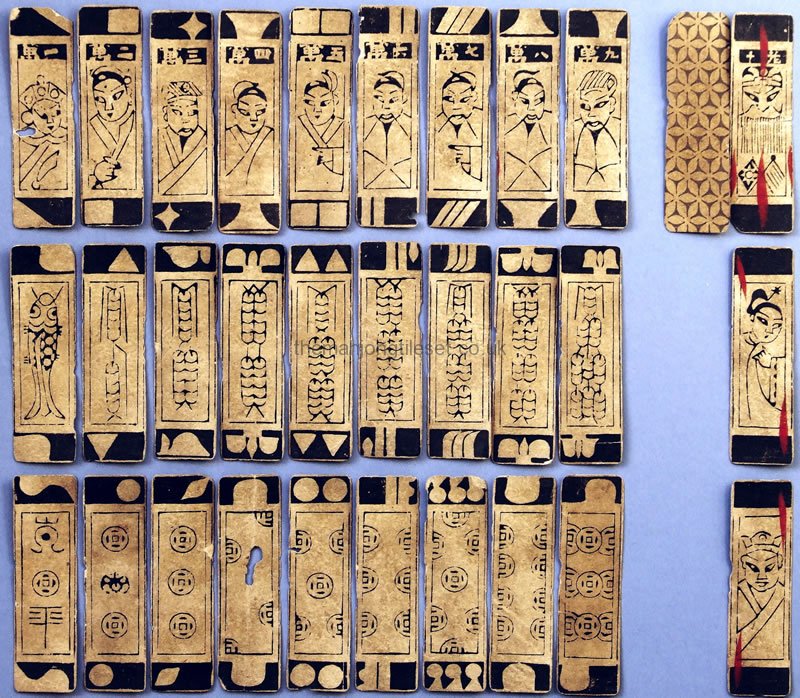 萬一
萬二
萬三
萬四
萬五
萬六
萬七
萬八
萬九
十
themahjongtileset.co.uk